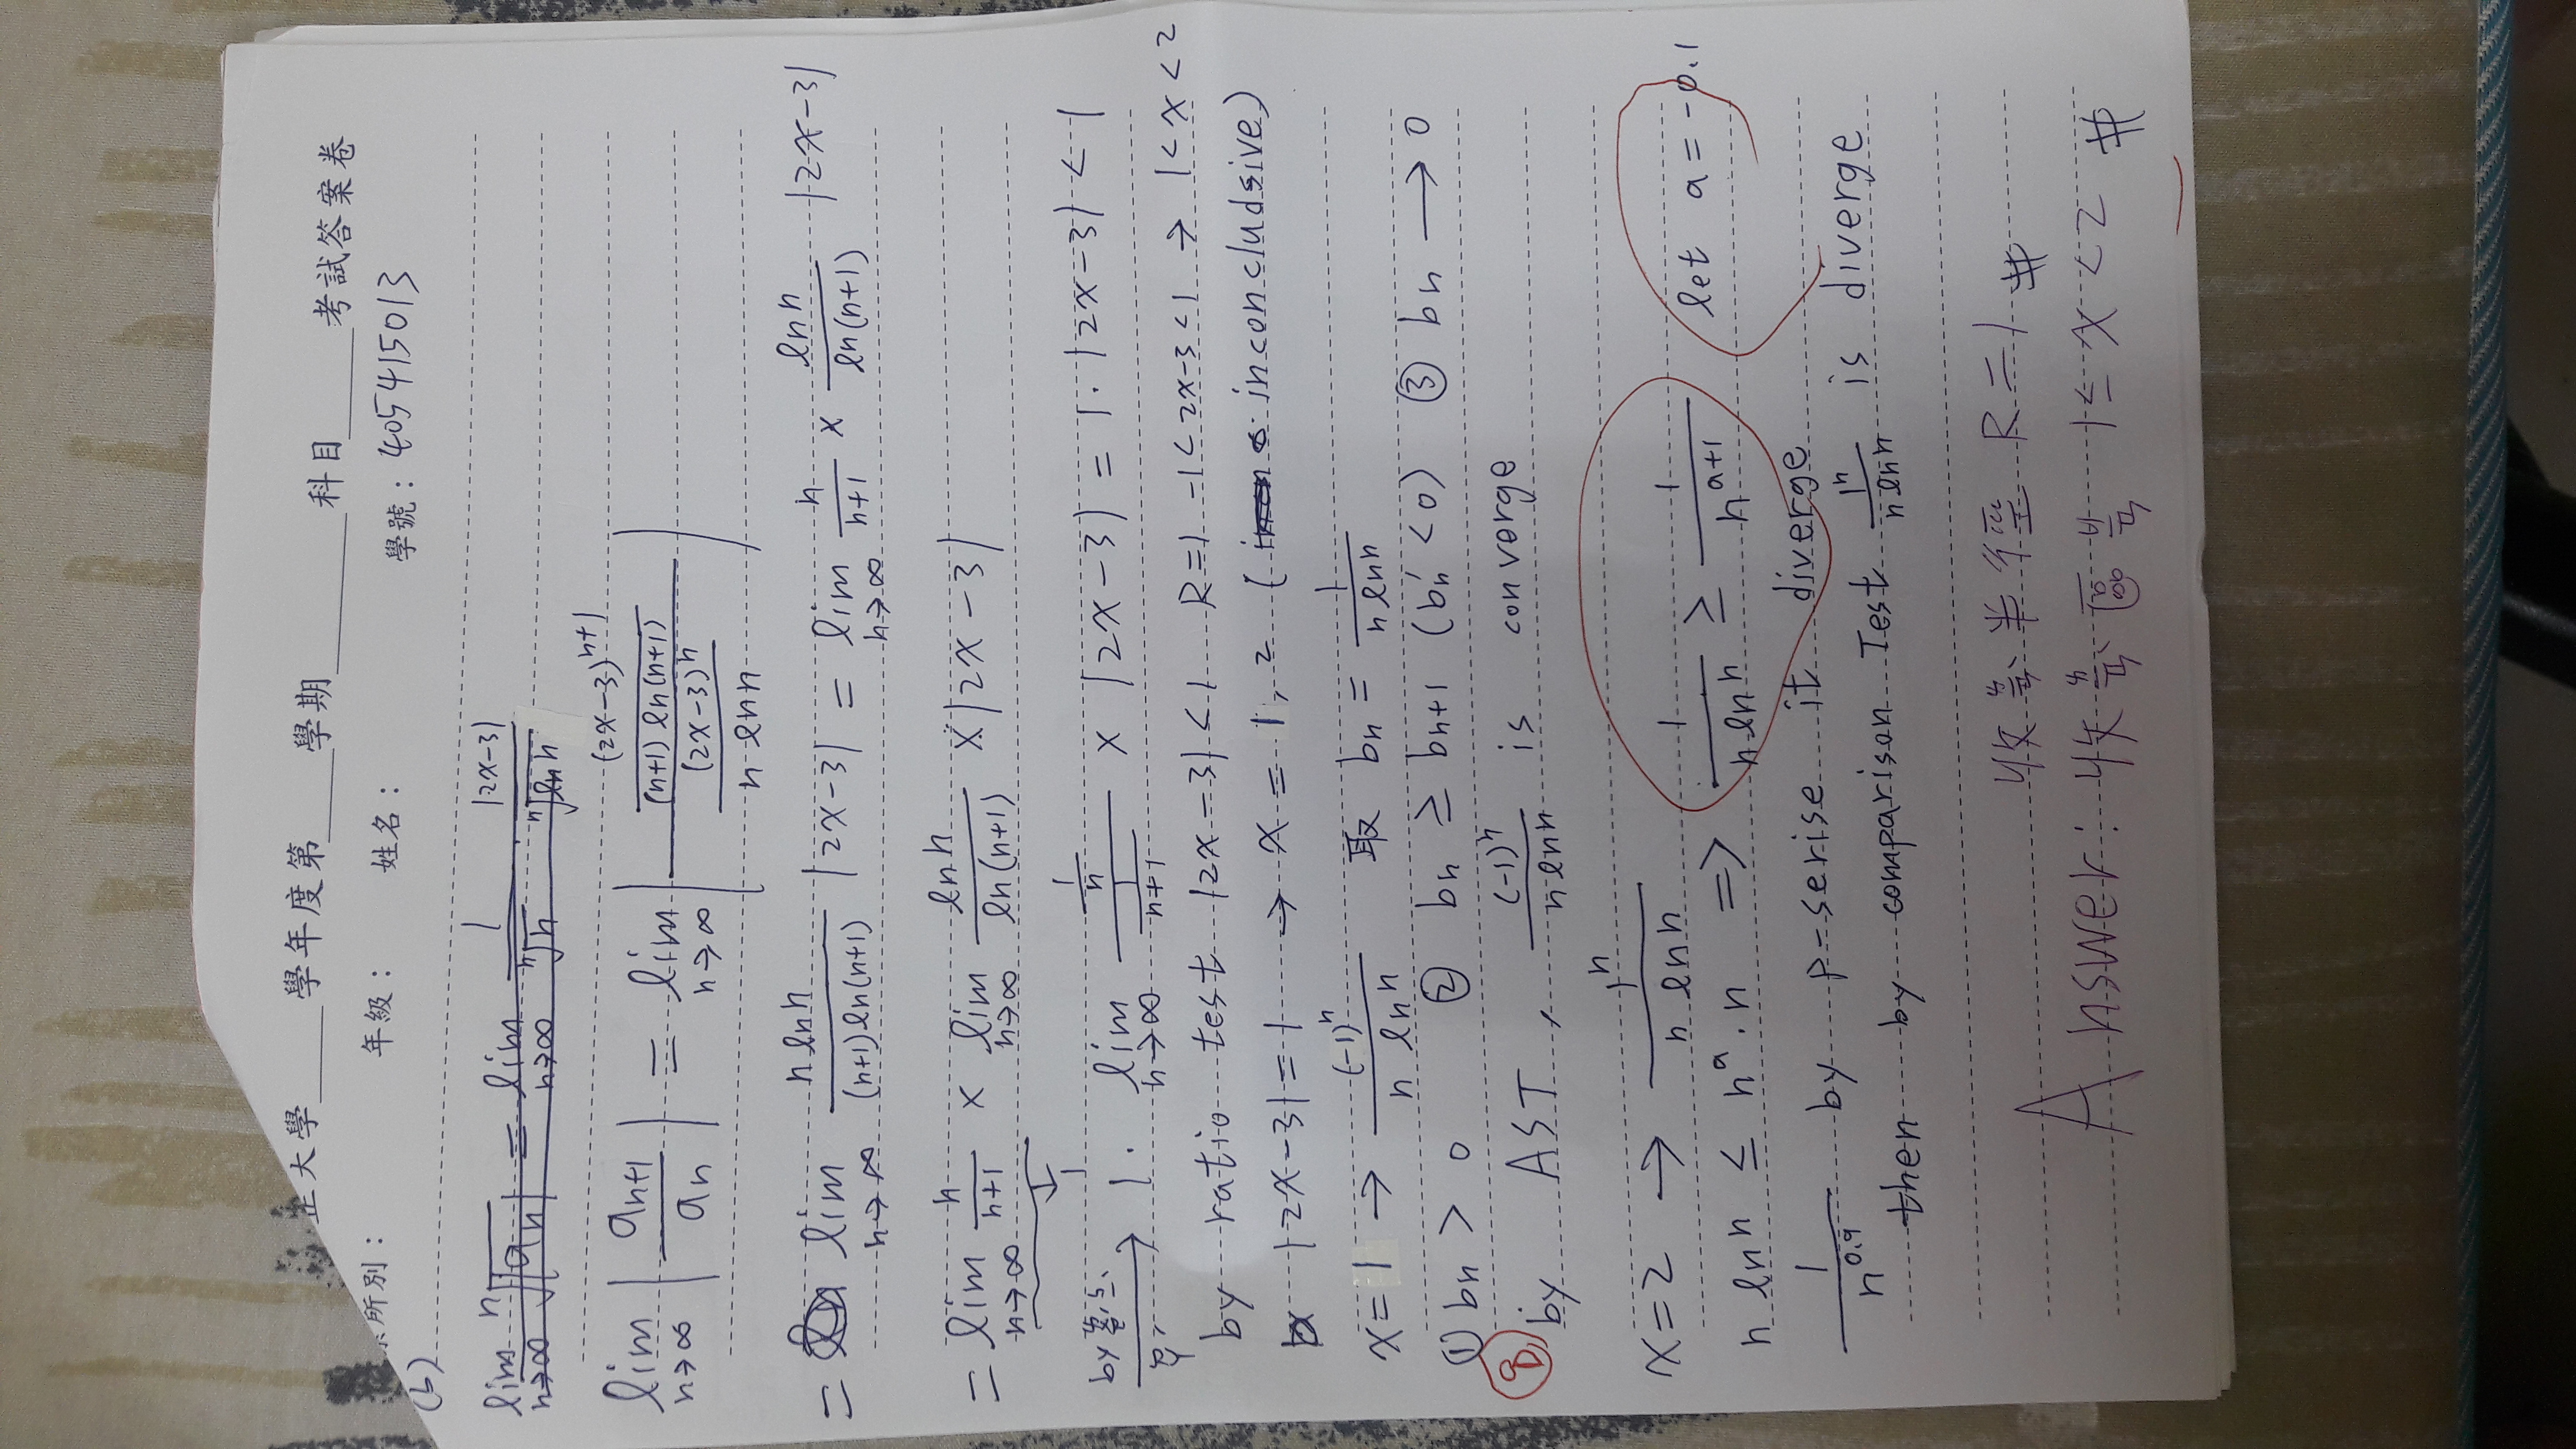 正大學 學年度第 學期 科目 考試答案卷
系所別： 年級： 姓名： 學號：405415013
(b)
lim n→∞ ⁿ√|aₙ| = lim n→∞ 1/ⁿ√n · |2x-3|/ⁿ√ln n
lim n→∞ |aₙ₊₁/aₙ| = lim n→∞ |((2x-3)ⁿ⁺¹/((n+1) ln(n+1)))/((2x-3)ⁿ/(n ln n))|
= lim n→∞ (n ln n)/((n+1)ln(n+1)) |2x-3| = lim n→∞ n/(n+1) × ln n/ln(n+1) |2x-3|
= lim n→∞ n/(n+1) × lim n→∞ ln n/ln(n+1) × |2x-3|
↓
1
by → 1 · lim n→∞ (1/n)/(1/(n+1)) × |2x-3| = 1·|2x-3| < 1
by ratio test |2x-3| < 1 R=1 -1<2x-3<1 → 1<x<2
|2x-3| = 1 → x = 1, 2 (inconcludsive)
x=1 → (-1)ⁿ/(n ln n) 取 bₙ = 1/(n ln n)
① bₙ > 0 ② bₙ ≥ bₙ₊₁ (bₙ' < 0) ③ bₙ → 0
8
by AST, (-1)ⁿ/(n ln n) is converge
x=2 → 1ⁿ/(n ln n)
n ln n ≤ nᵃ·n => 1/(n ln n) ≥ 1/nᵃ⁺¹ let a = -0.1
1/n⁰·⁹ by p-serise it diverge
then by comparison Test 1ⁿ/(n ln n) is diverge
收斂半徑 R=1 #
Answer: 收斂區間 1≤x<2 #